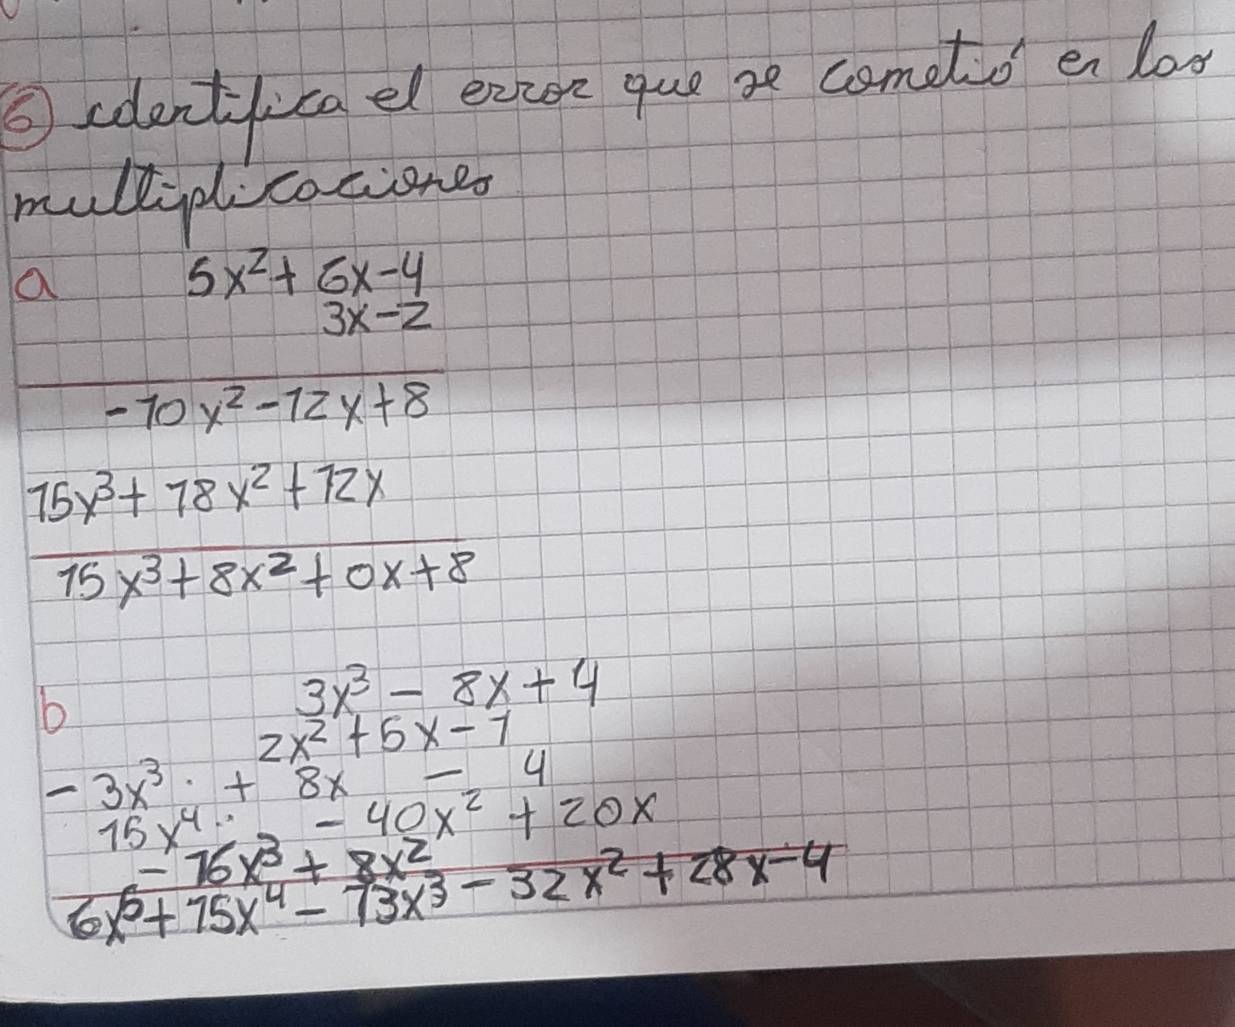 6 identifica el error que se cometió en las
multiplicaciones
a 5x² + 6x - 4
3x - 2
-10x² - 12x + 8
15x³ + 18x² + 12x
15x³ + 8x² + 0x + 8
b 3x³ - 8x + 4
2x² + 5x - 1
- 3x³ + 8x - 4
15x⁴ - 40x² + 20x
- 16x³ + 8x²
6x⁵ + 15x⁴ - 13x³ - 32x² + 28x - 4